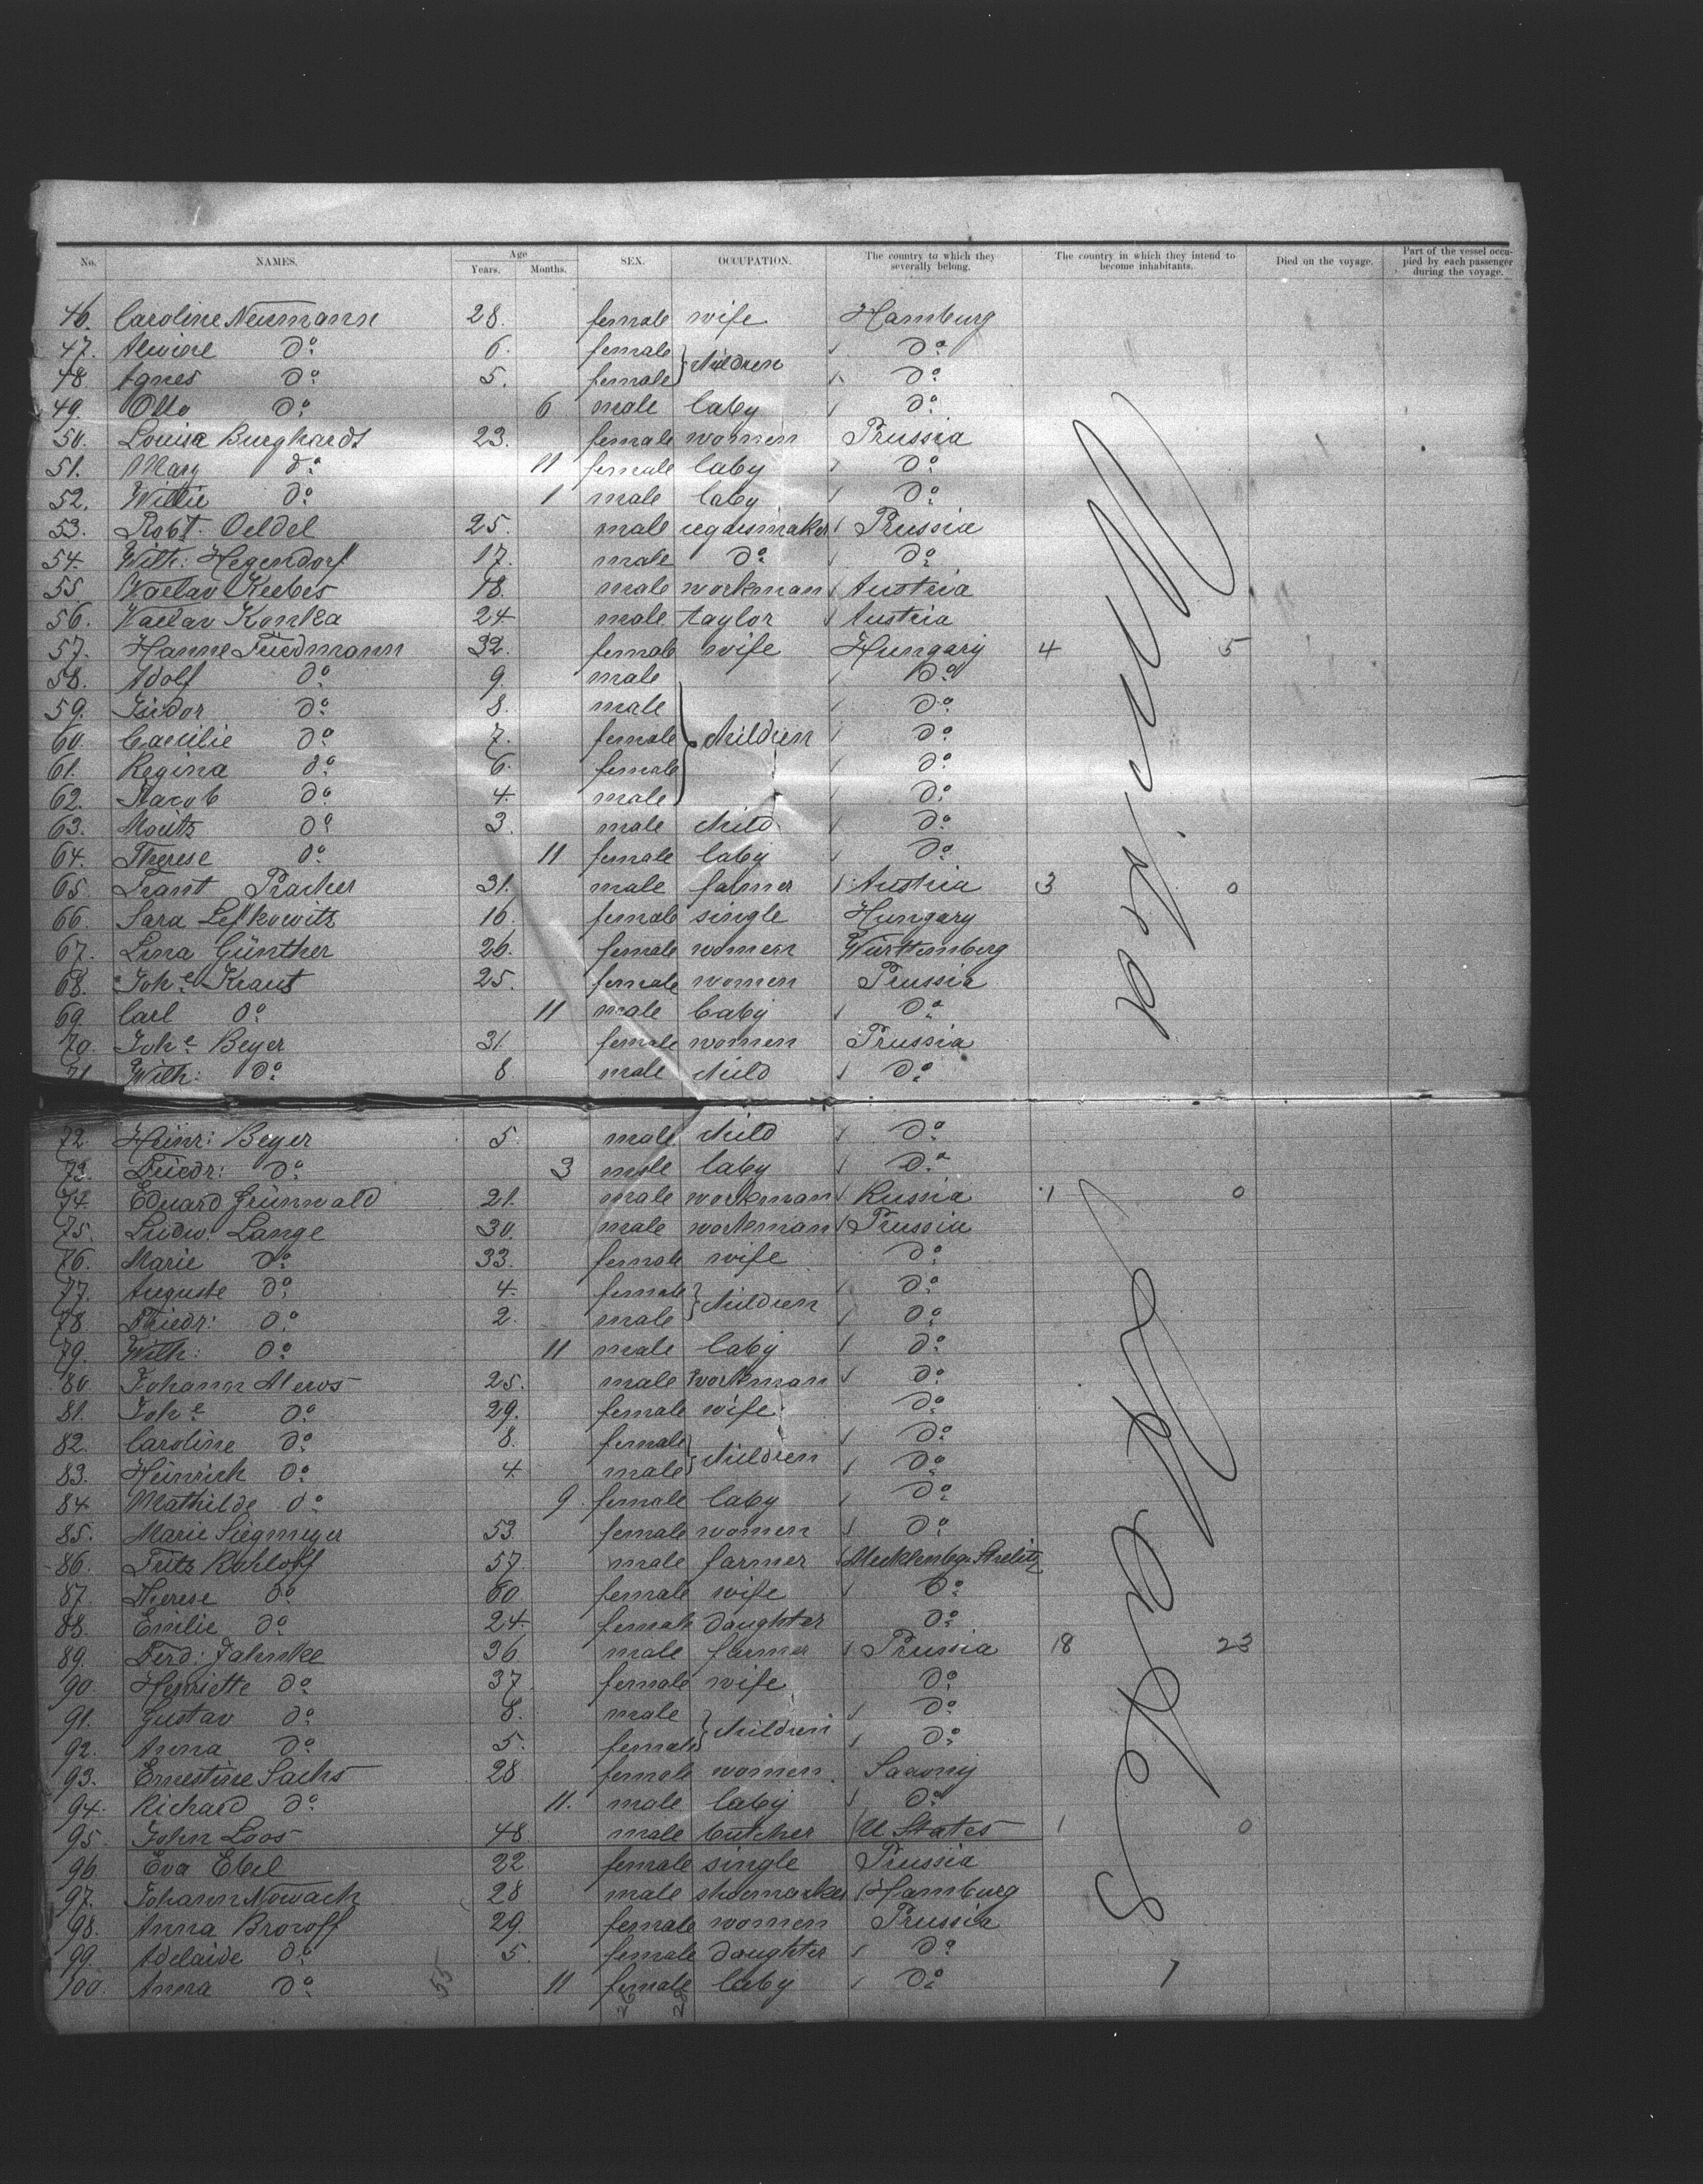 No. NAMES. Age Years. Months. SEX. OCCUPATION. The country to which they severally belong. The country in which they intend to become inhabitants. Died on the voyage. Part of the vessel occupied by each passenger during the voyage.
46. Caroline Neumann 28. female wife Hamburg
47. Alwine do 6. female } children do
48. Agnes do 5. female do
49. Otto do 6 male baby do
50. Louisa Burghardt 23. female women Prussia
51. Mary do 11 female baby do
52. Willie do 1 male baby do
53. Robt. Oeldel 25. male cigarsmaker Prussia
54. Wilh: Hegendorf 17. male do do
55 Waclav Keebes 18. male workman Austria
56. Waclav Konka 24 male taylor Austria
57. Hanne Friedmann 32. female wife Hungary 4 5
58. Adolf do 9. male do
59. Isidor do 8. male do
60 Caecilie do 7. female } children do
61. Regina do 6. female do
62. Jacob do 4. male do
63. Moritz do 3. male child do
64. Therese do 11 female baby do
65. Frant Pracher 31. male farmer Austria 3 0
66. Sara Lefkowitz 16. female single Hungary
67. Lina Günther 26. female women Württemberg
68. Johe Kraus 25. female women Prussia
69 Carl do 11 male baby do
70. Johe Beyer 31. female women Prussia
71 Wilh: do 8 male child do
72. Heinr: Beyer 5. male child do
73. Friedr: do 3 male baby do
74. Eduard Grünwald 21. male workman Russia 1 0
75. Ludw. Lange 30. male workman Prussia
76. Marie do 33. female wife do
77. Auguste do 4. female } children do
78. Friedr: do 2. male do
79. Wilh: do 11 male baby do
80 Johann Mews 25. male workman do
81. Johe do 29. female wife do
82. Caroline do 8. female } children do
83. Heinrich do 4. male do
84 Mathilde do 9. female baby do
85. Marie Siegmeyer 53. female women do
86. Fritz Rohloff 57. male farmer Mecklenbg. Strelitz
87. Therese do 60 female wife do
88. Emilie do 24. female daughter do
89. Ferd: Jahnke 36 male farmer Prussia 18 23
90. Henriette do 37 female wife do
91. Gustav do 8. male } children do
92. Anna do 5. female do
93. Ernestine Sachs 28 female women Saxony
94. Richard do 11. male baby do
95. John Loos 48 male butcher U. States 1 0
96. Eva Ebel 22 female single Prussia
97. Johann Nowack 28 male shoemaker Hamburg
98. Anna Brozoff 29. female women Prussia
99. Adelaide do 5. female daughter do
100. Anna do 11 female baby do
55 26 28